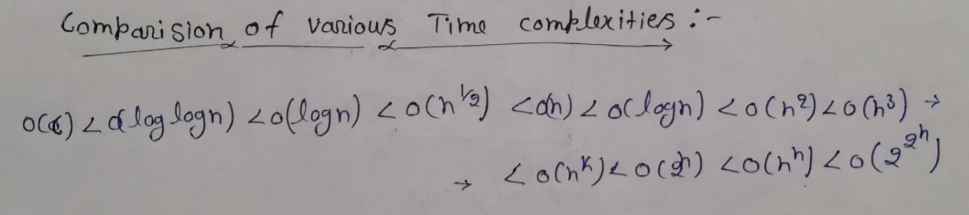 Comparision of various Time complexities :-
O(c) < O(log logn) < O(logn) < O(n^1/2) < O(n) < O(logn) < O(n²) < O(n³) →
→ < O(n^k) < O(2^n) < O(n^n) < O(2^2^n)